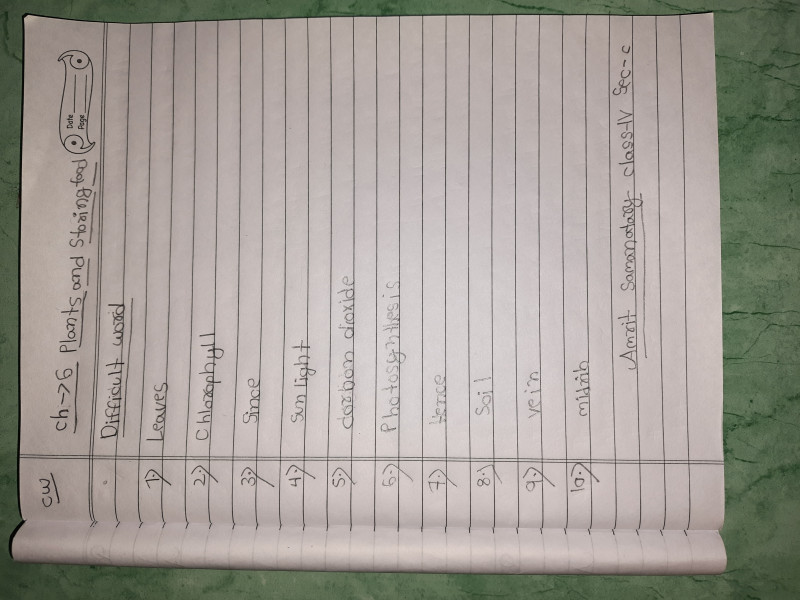 CW
Date
Page
Ch->6 Plants and Storing food
Difficult word
1.) Leaves
2.) Chlorophyll
3.) Since
4.) Sunlight
5.) carbon dioxide
6.) Photosynthesis
7.) Hence
8.) Soil
9.) vein
10.) midrib
Amrit Samantaray class-IV Sec-c